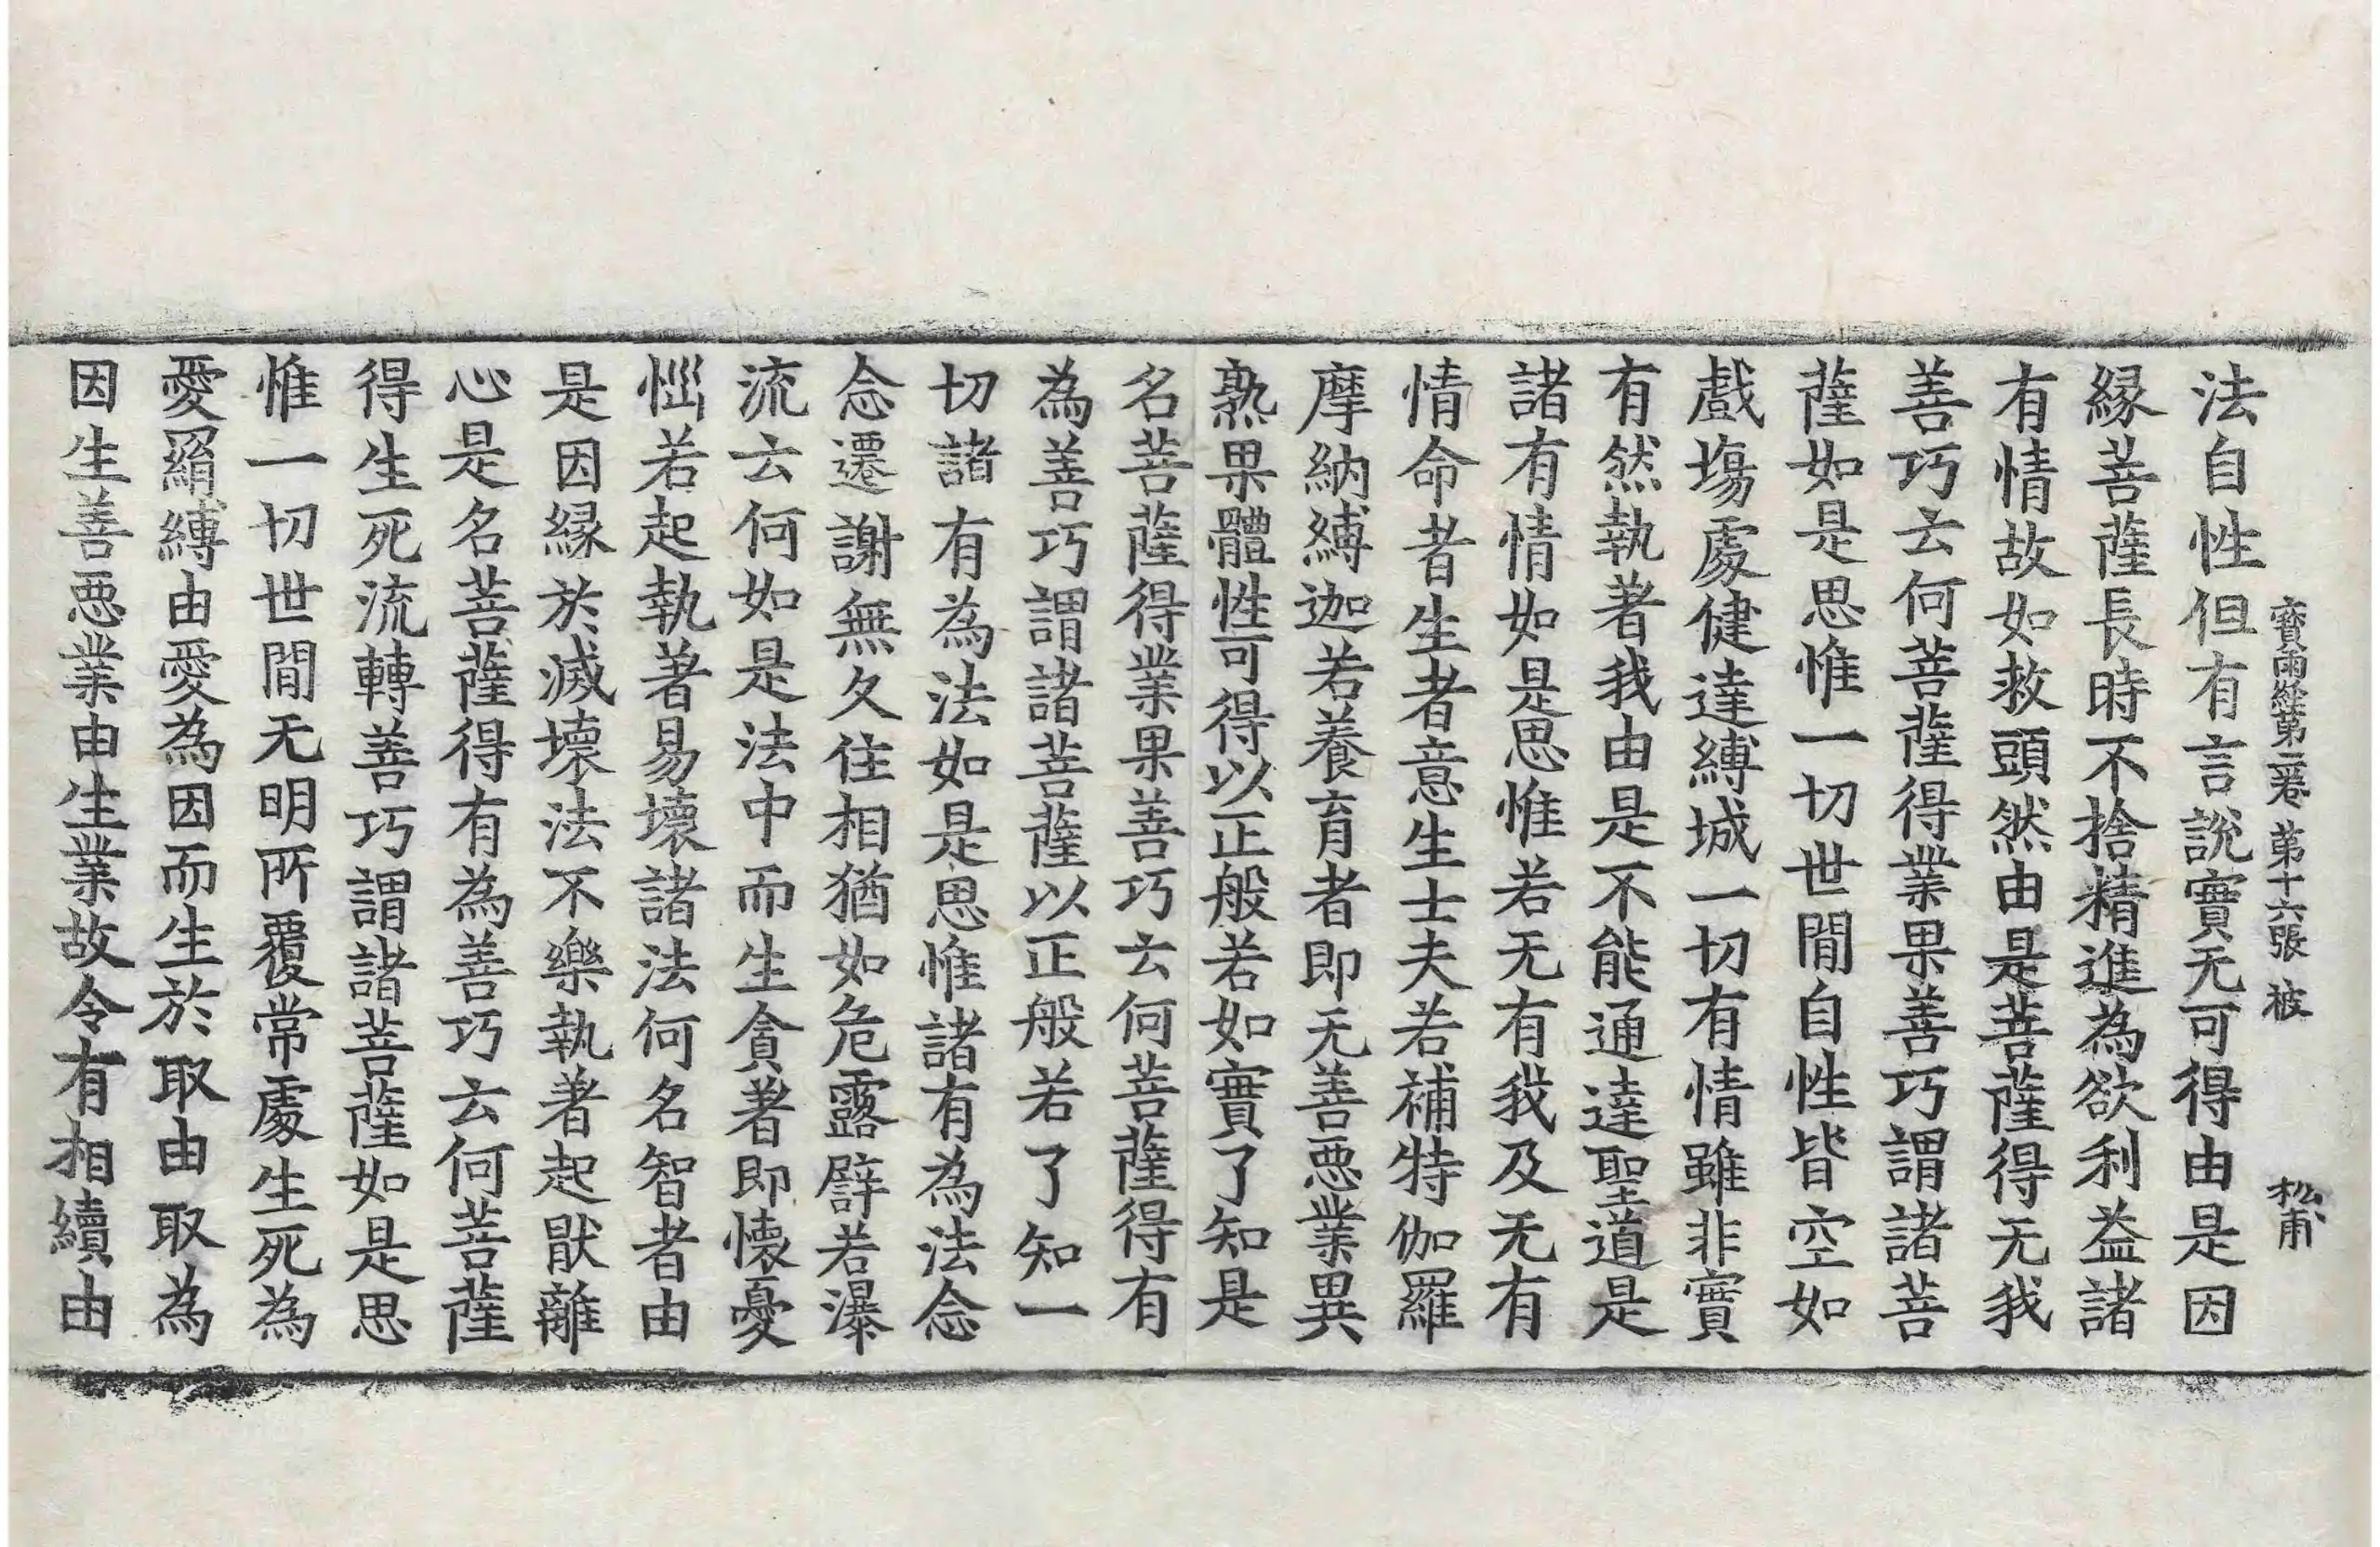 寶雨經第二卷　第十六張　被　松甫
法自性但有言說實无可得由是因
緣菩薩長時不捨精進為欲利益諸
有情故如救頭然由是菩薩得无我
善巧云何菩薩得業果善巧謂諸菩
薩如是思惟一切世間自性皆空如
戲塲處健達縛城一切有情雖非實
有然執著我由是不能通達聖道是
諸有情如是思惟若无有我及无有
情命者生者意生士夫若補特伽羅
摩納縛迦若養育者即无善惡業異
熟果體性可得以正般若如實了知是
名菩薩得業果善巧云何菩薩得有
為善巧謂諸菩薩以正般若了知一
切諸有為法如是思惟諸有為法念
念遷謝無久住相猶如危露譬若瀑
流云何如是法中而生貪著即懷憂
惱若起執著易壞諸法何名智者由
是因緣於滅壞法不樂執著起猒離
心是名菩薩得有為善巧云何菩薩
得生死流轉善巧謂諸菩薩如是思
惟一切世間无明所覆常處生死為
愛羂縛由愛為因而生於取由取為
因生善惡業由生業故令有相續由